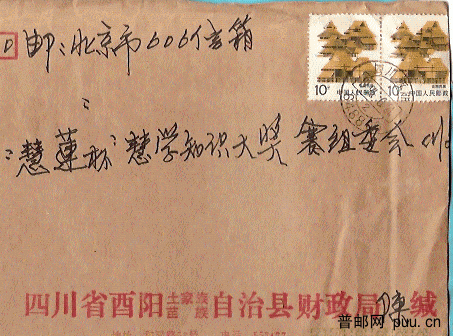 邮：北京市606信箱
"慧莲杯"慧学知识大奖赛组委会收
10分 中国人民邮政
10分 中国人民邮政
四川省酉阳土家族苗族自治县财政局 陈缄
普邮网 puu.cn